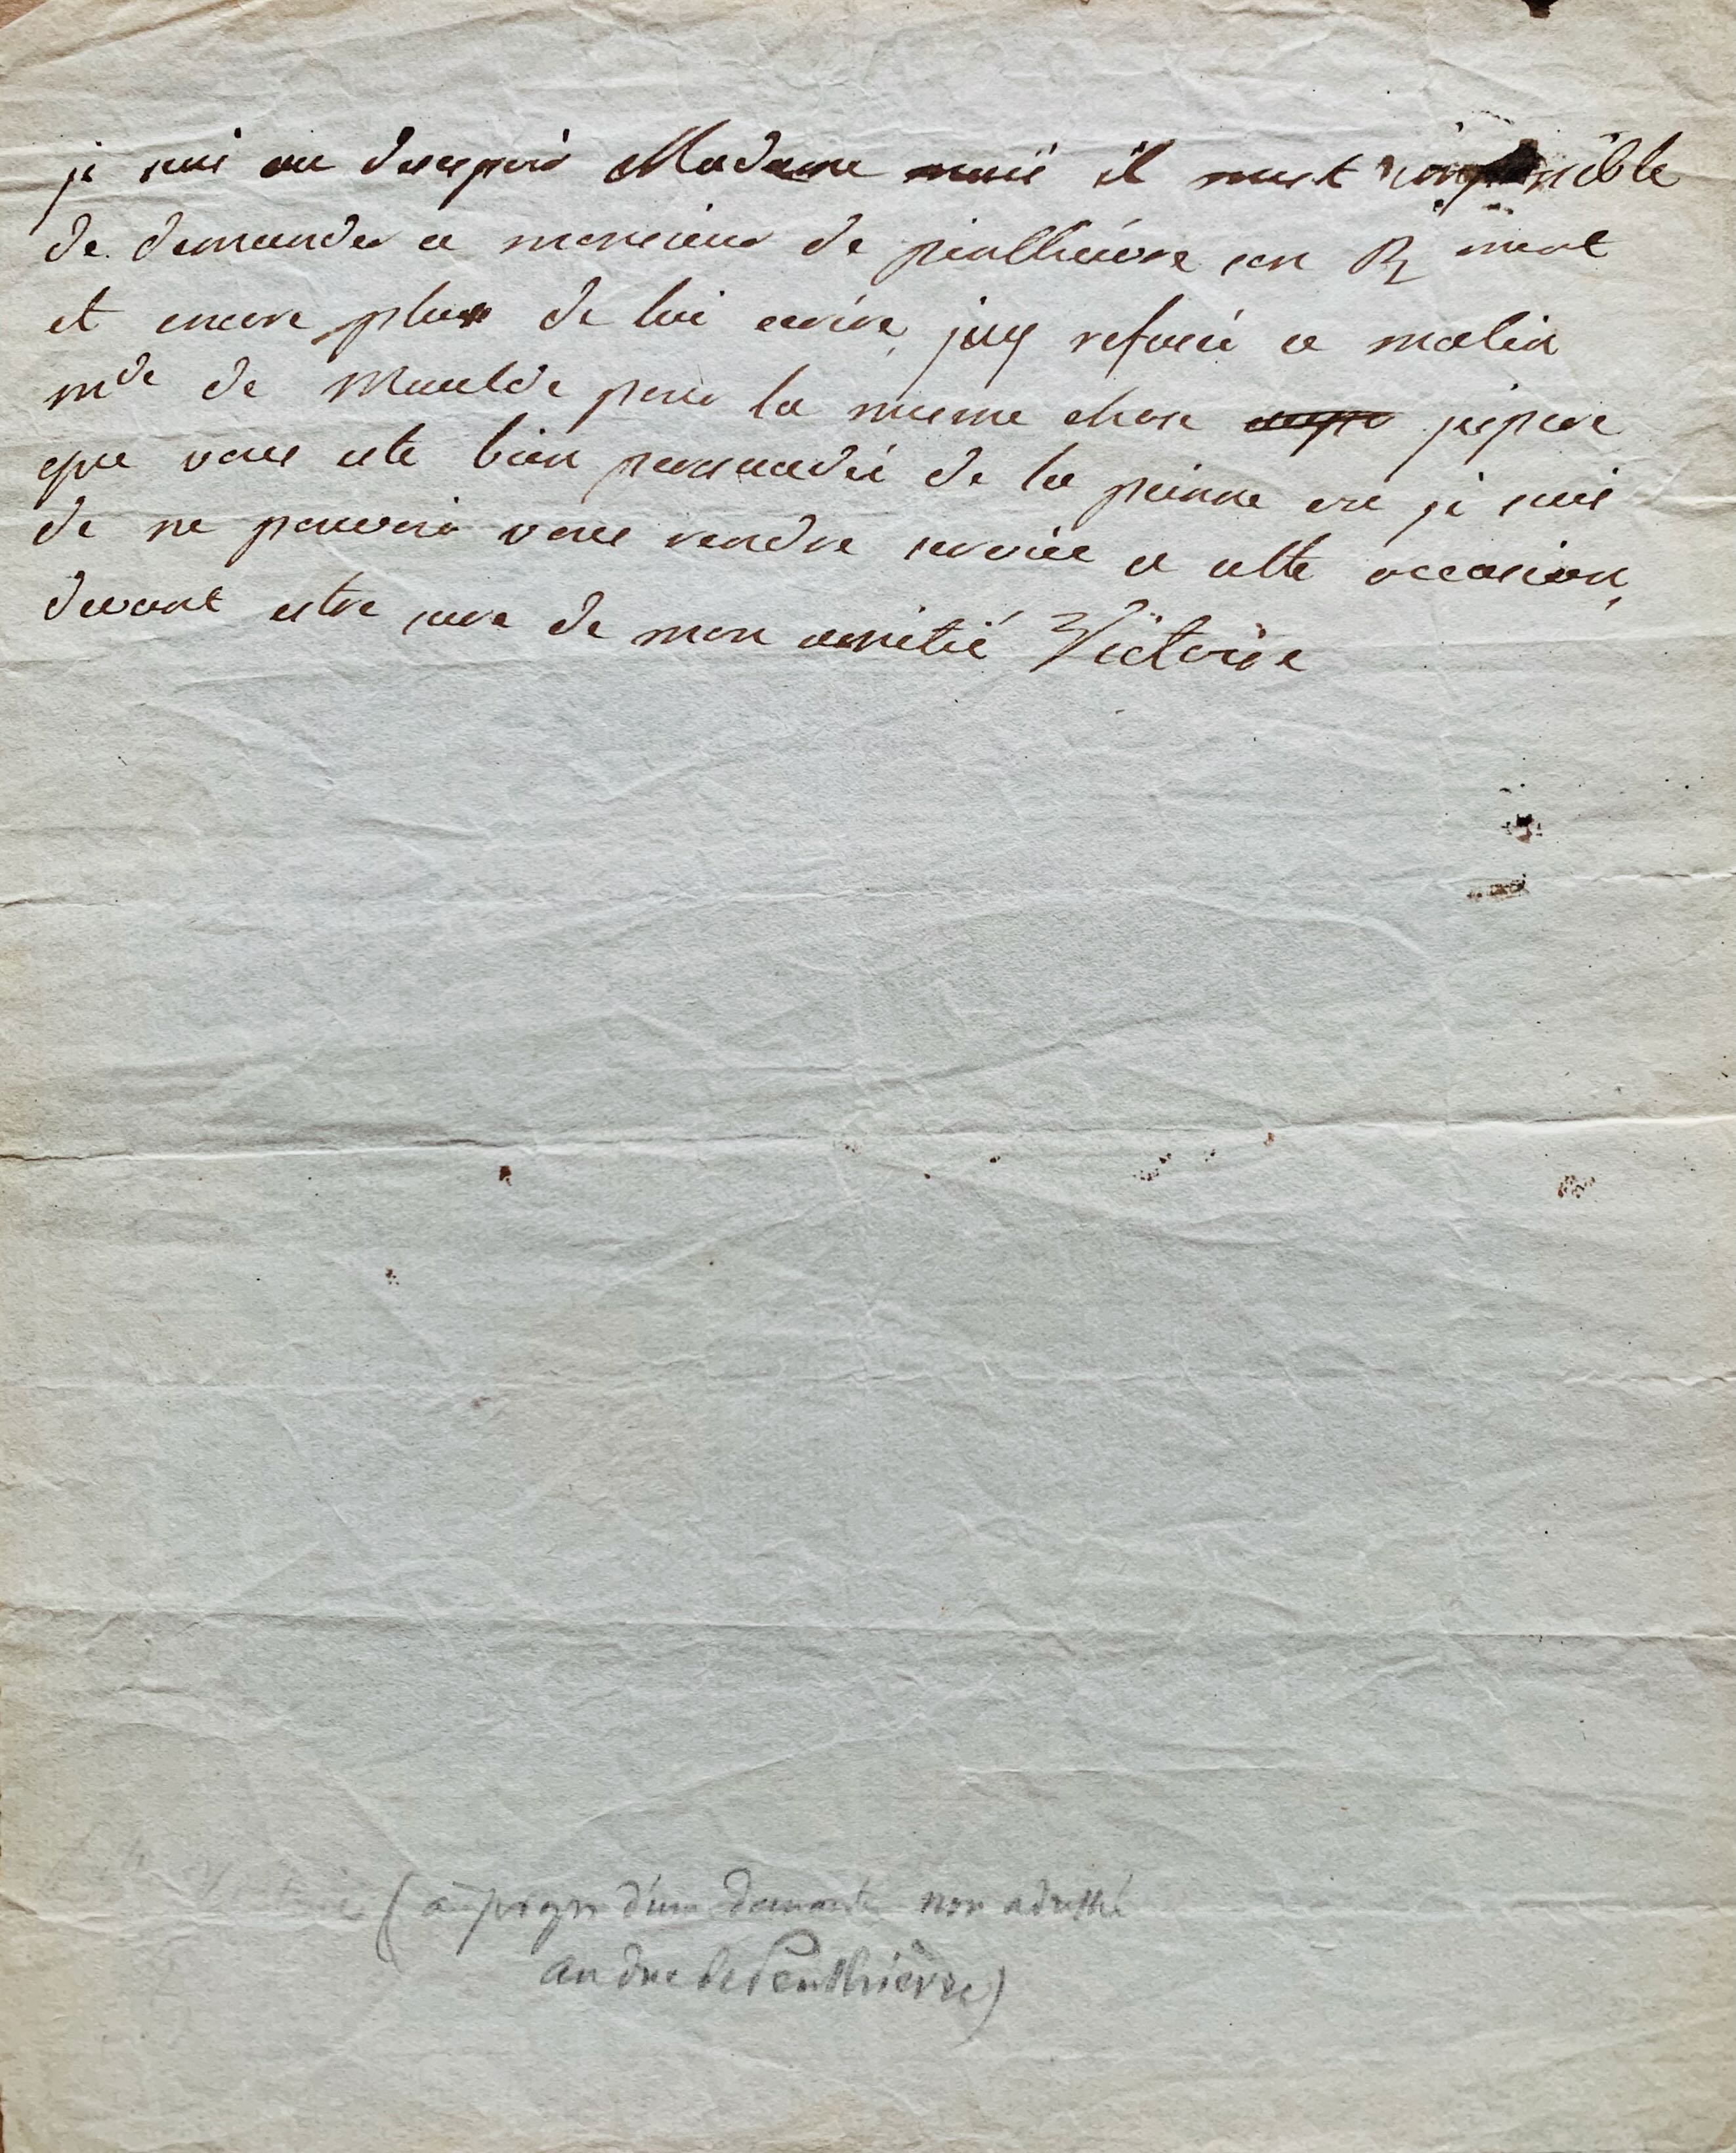 je suis au desespoir Madame mais il mest impossible
de demander a monsieur de pinthievre son Rgment
et encore plus de lui ecrire, jay refusé ce matin
mde de Maulde pour la mesme chose jespere
que vous ete bien persuadée de la peinne ou je suis
de ne pouvoir vous rendre service a cette occasion,
devant estre sure de mon amitié Victoire
(à propos d'une demande non adressée
au duc de Penthièvre)